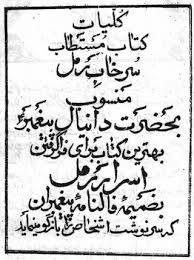 کلیات
کتاب مستطاب
سرخاب رمل
منسوب
بحضرت دانیال پیغمبر
بهترین کتاب برای فراگرفتن
اسرار رمل
بضمیمه فالنامه پیغمبران
که سرنوشت اشخاص را بازگو مینماید